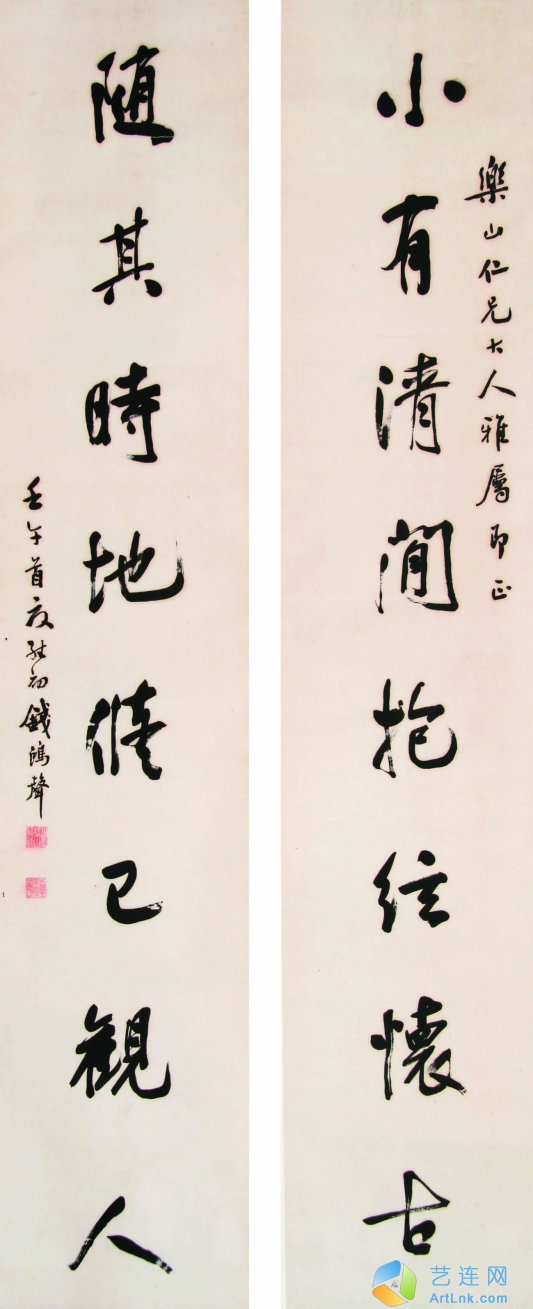 樂山仁兄大人雅屬即正
小有清閒抱絃懷古
随其時地脩己觀人
壬午首夏初錢鴻聲
艺连网
ArtLnk.com